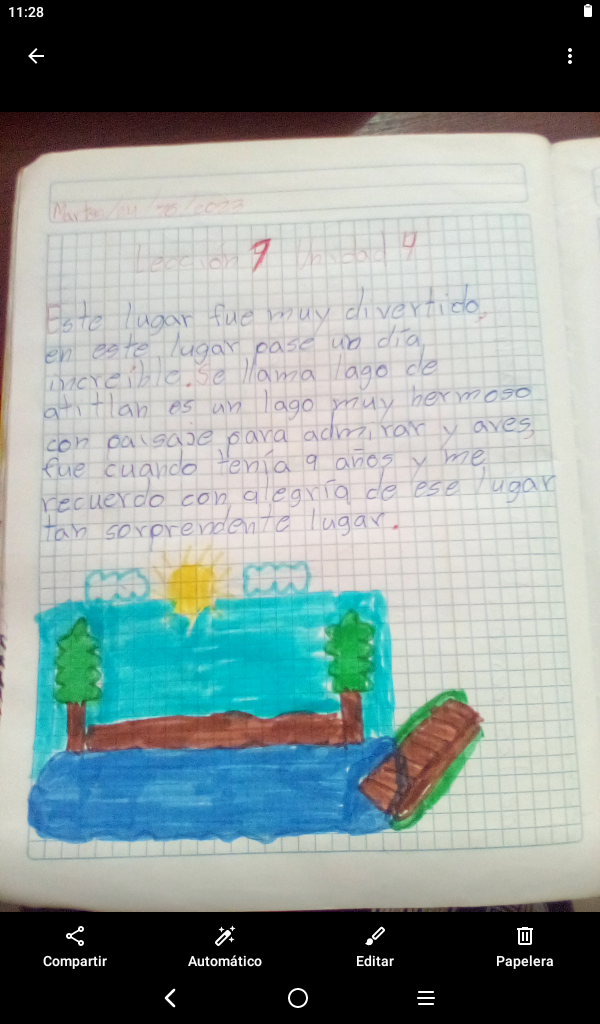 11:28
Lección 9 Unidad 9
Este lugar fue muy divertido,
en este lugar pase un día,
increible. Se llama lago de
atitlan es un lago muy hermoso
con paisaje para admirar y aves,
fue cuando tenía 9 años y me
recuerdo con alegría de ese lugar
tan sorprendente lugar.
Compartir Automático Editar Papelera